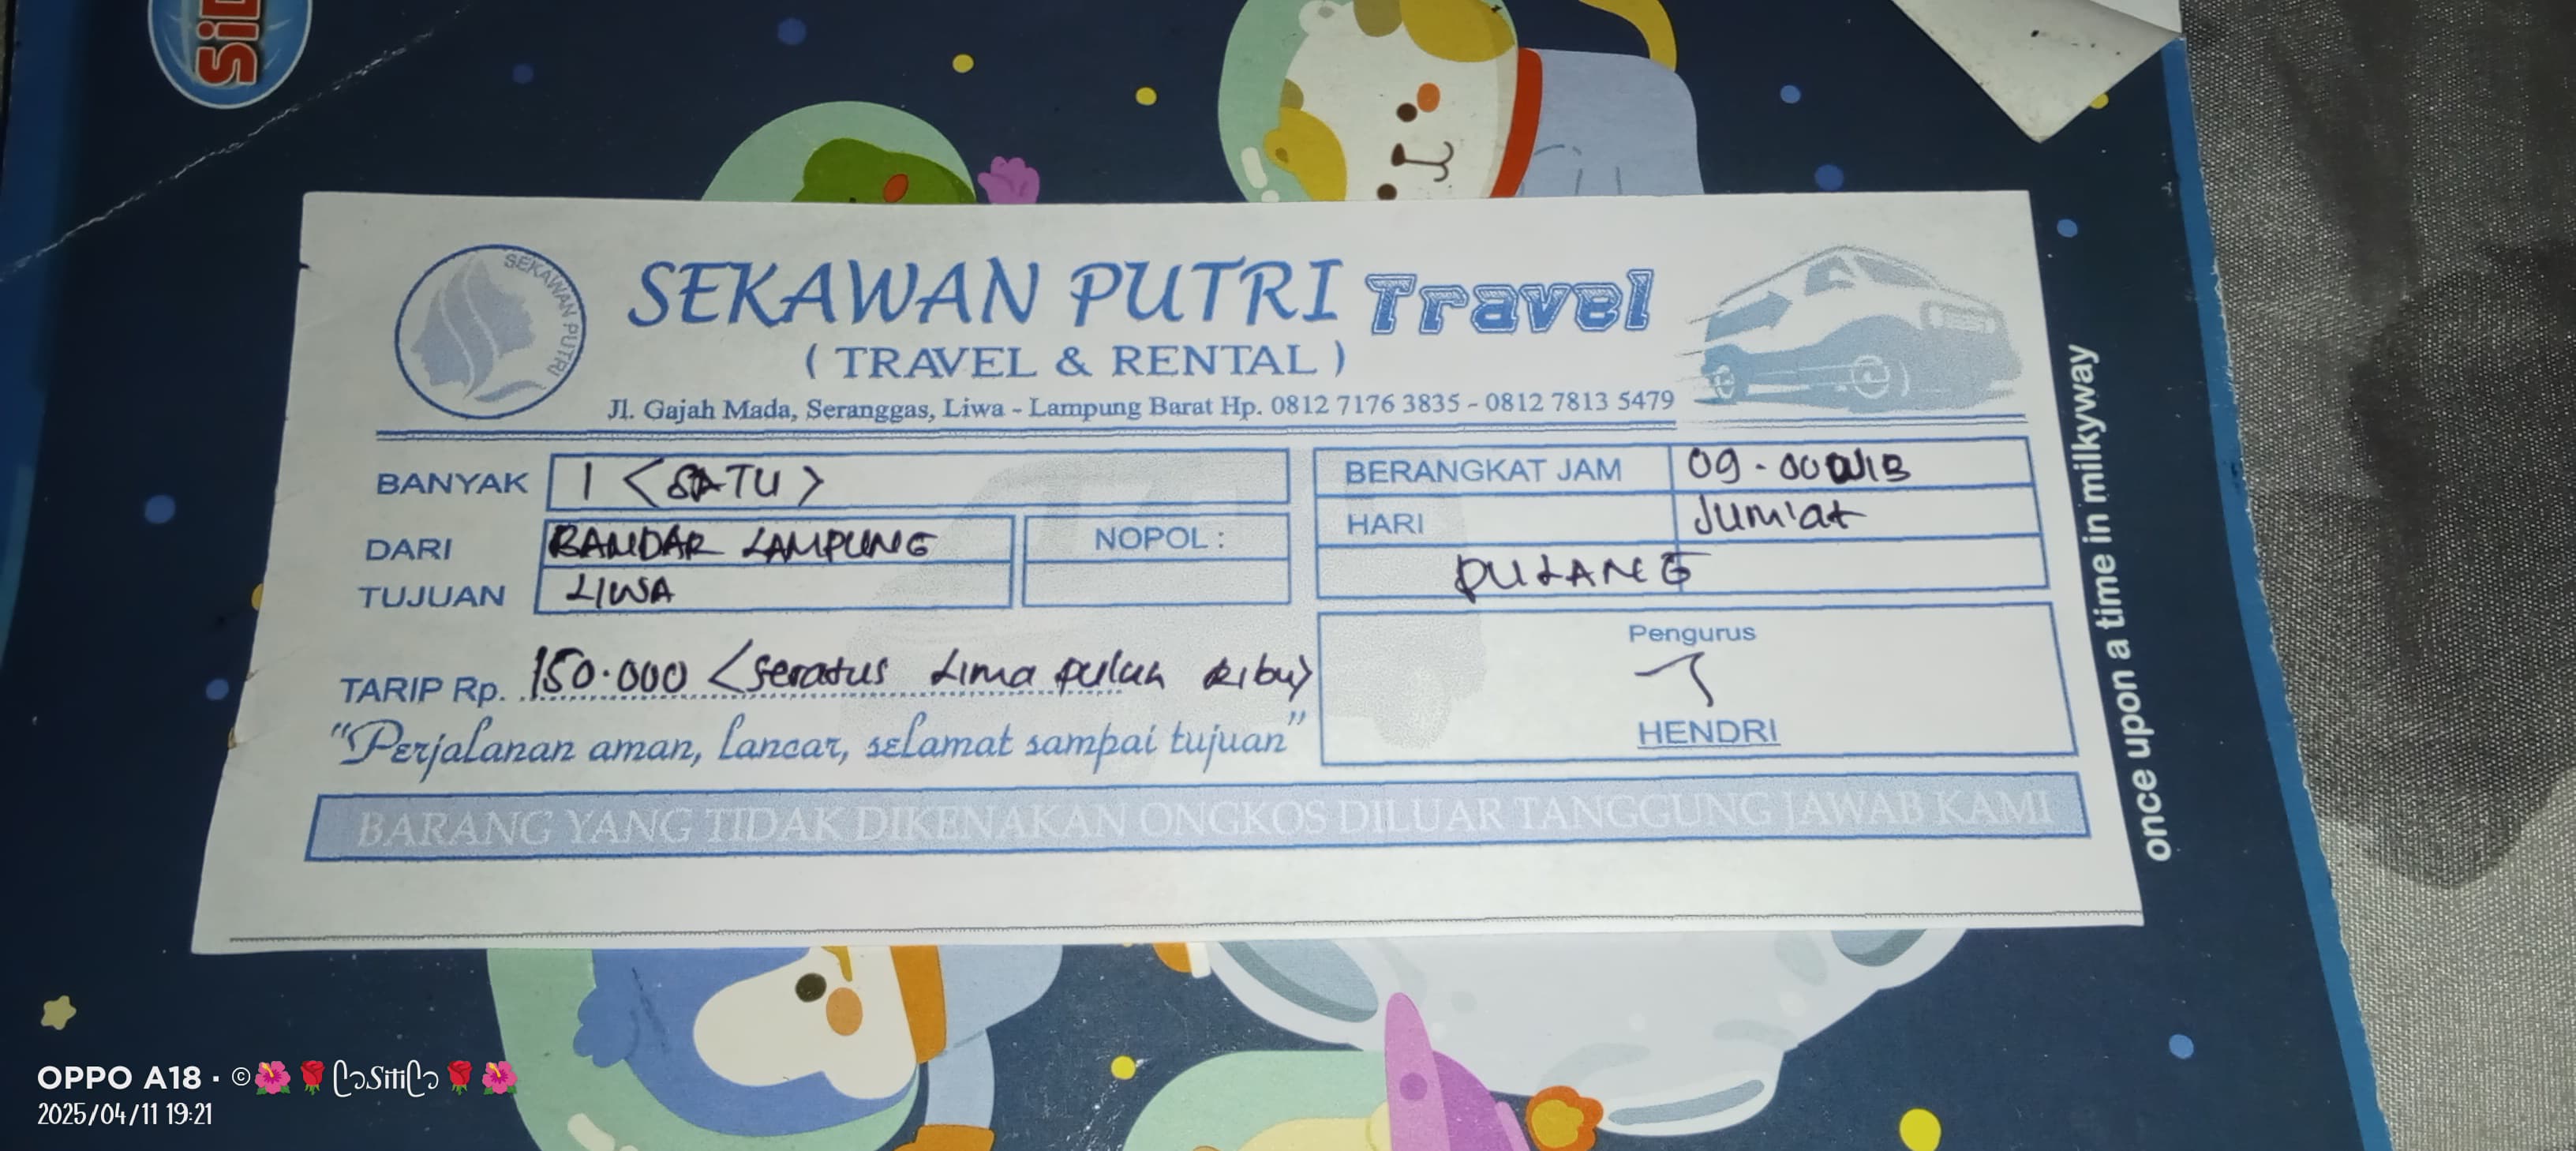 SiD
SEKAWAN PUTRI
SEKAWAN PUTRI Travel
( TRAVEL & RENTAL )
Jl. Gajah Mada, Seranggas, Liwa - Lampung Barat Hp. 0812 7176 3835 - 0812 7813 5479
BANYAK 1 <SATU>
DARI BANDAR LAMPUNG
TUJUAN LIWA
NOPOL :
BERANGKAT JAM 09-00 WIB
HARI Jum'at
PULANG
TARIP Rp. 150.000 <seratus Lima puluh Ribu>
"Perjalanan aman, lancar, selamat sampai tujuan"
Pengurus
HENDRI
BARANG YANG TIDAK DIKENAKAN ONGKOS DILUAR TANGGUNG JAWAB KAMI
once upon a time in milkyway
OPPO A18 · ©🌺🌹Siti🌹🌺
2025/04/11 19:21